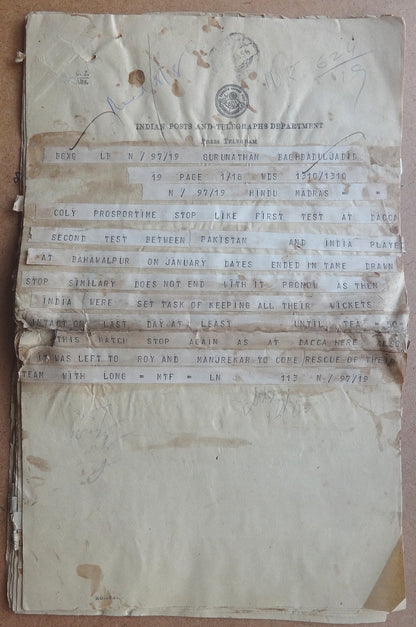 INDIAN POSTS AND TELEGRAPHS DEPARTMENT
PRESS TELEGRAM
BGXG LB N / 97/19 GURUNATHAN BAGHDADULJADID
19 PAGE 1/18 WDS 1310/1310
N / 97/19 HINDU MADRAS = =
COLY PROSPORTIME STOP LIKE FIRST TEST AT DACCA
SECOND TEST BETWEEN PAKISTAN AND INDIA PLAYED
AT BAHAWALPUR ON JANUARY DATES ENDED IN TAME DRAWN
STOP SIMILARY DOES NOT END WITH IT PRONOW AS THEN
INDIA WERE SET TASK OF KEEPING ALL THEIR WICKETS
INTACT ON LAST DAY AT LEAST UNTIL TEA
THIS MATCH STOP AGAIN AS AT DACCA HERE
IT WAS LEFT TO ROY AND MANJREKAR TO COME RESCUE OF THEIR
TEAM WITH LONG = MTF = LN 113 N / 97/19